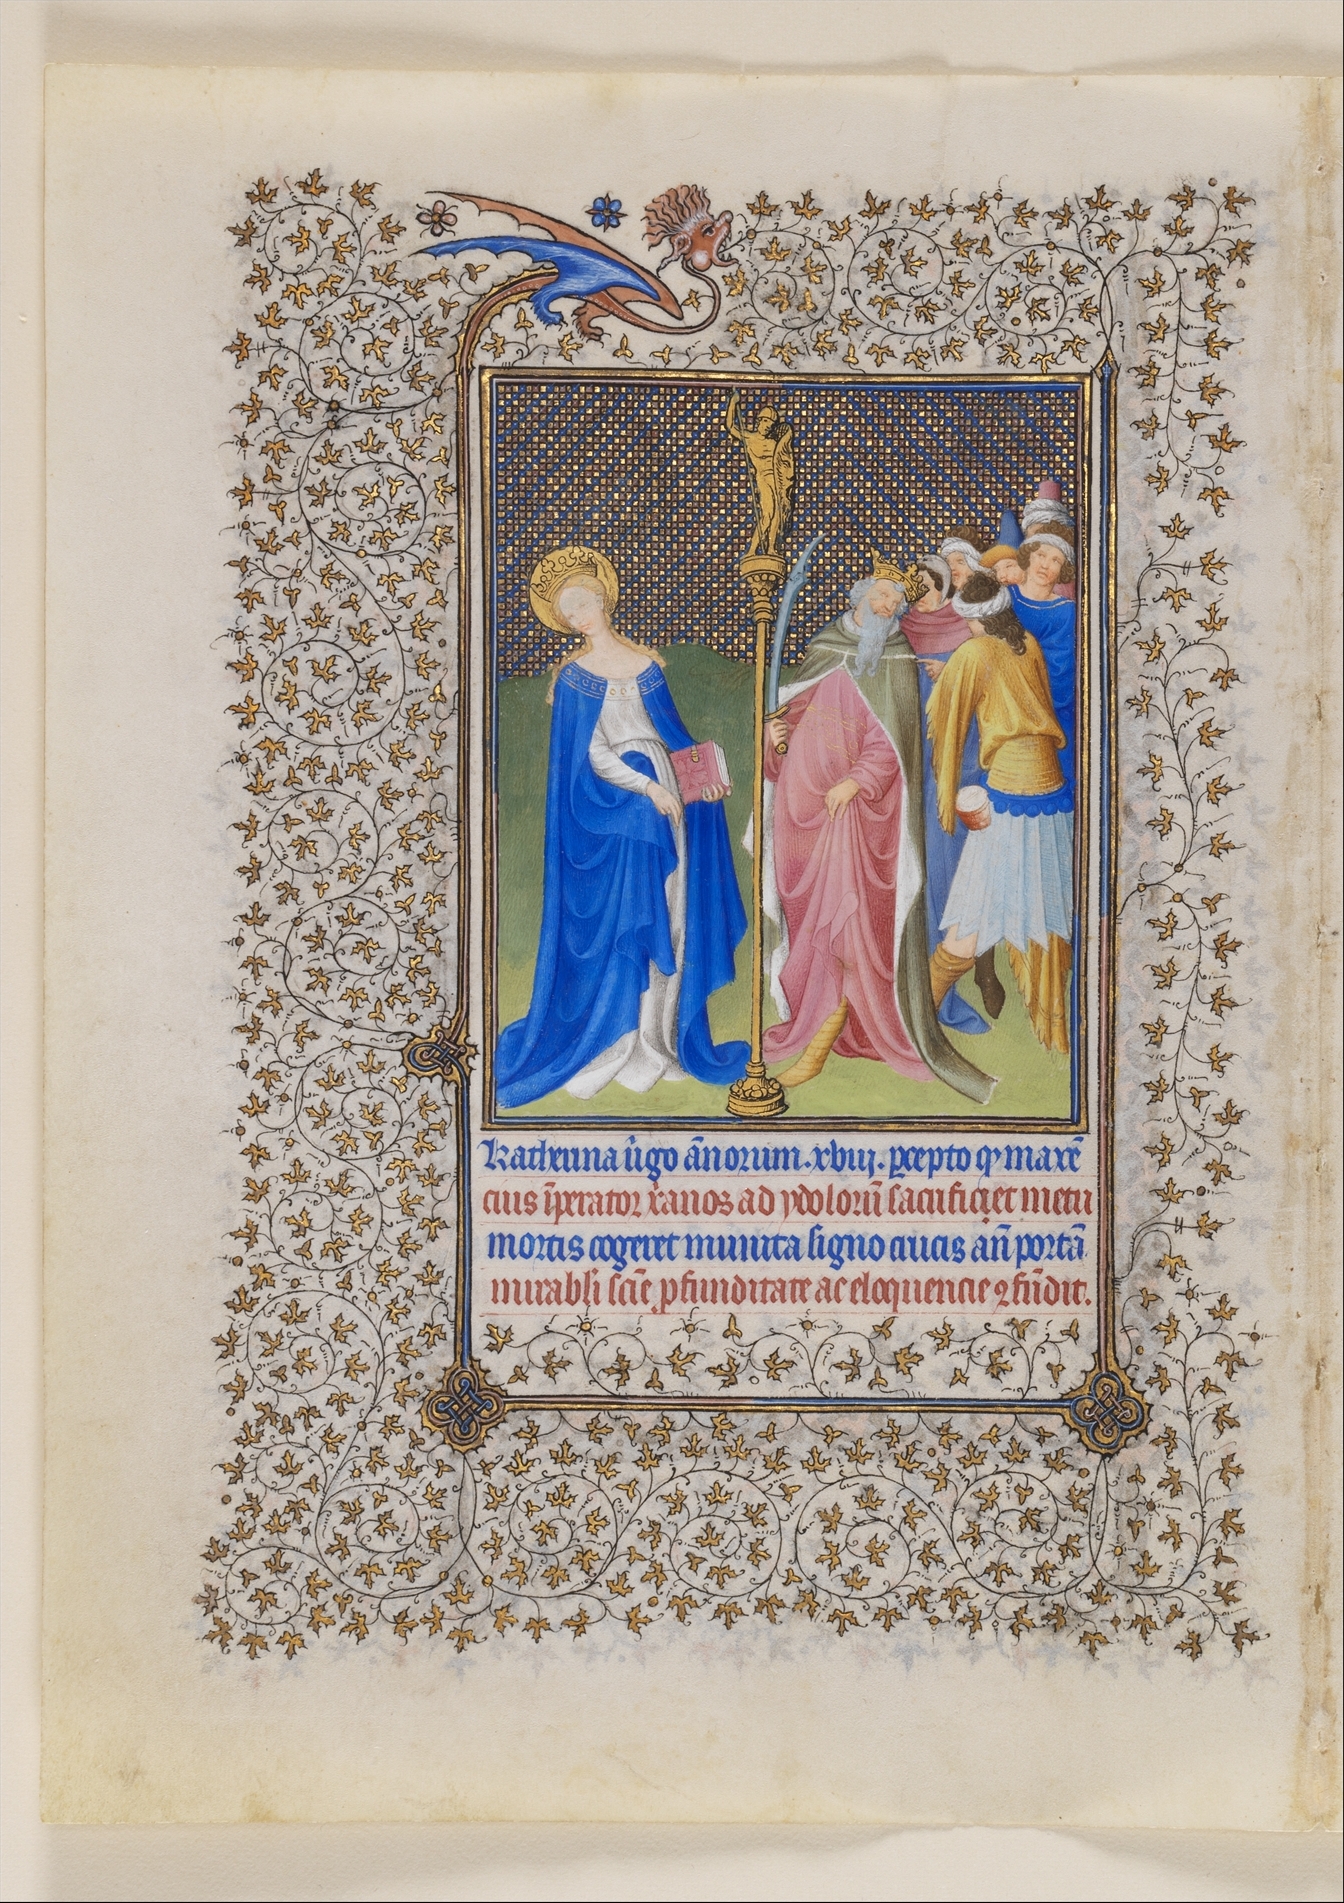 Katherina ũgo ãnorum .xviij. p̄cepto qͥ maxẽ
cius ĩperator x̃anos ad ydolorũ sacrificiet metu
mortis cogeret munita signo crucis añ portã
mirabl̃i sciẽ ꝓfunditate ac eloquencie ꝯfũdit.